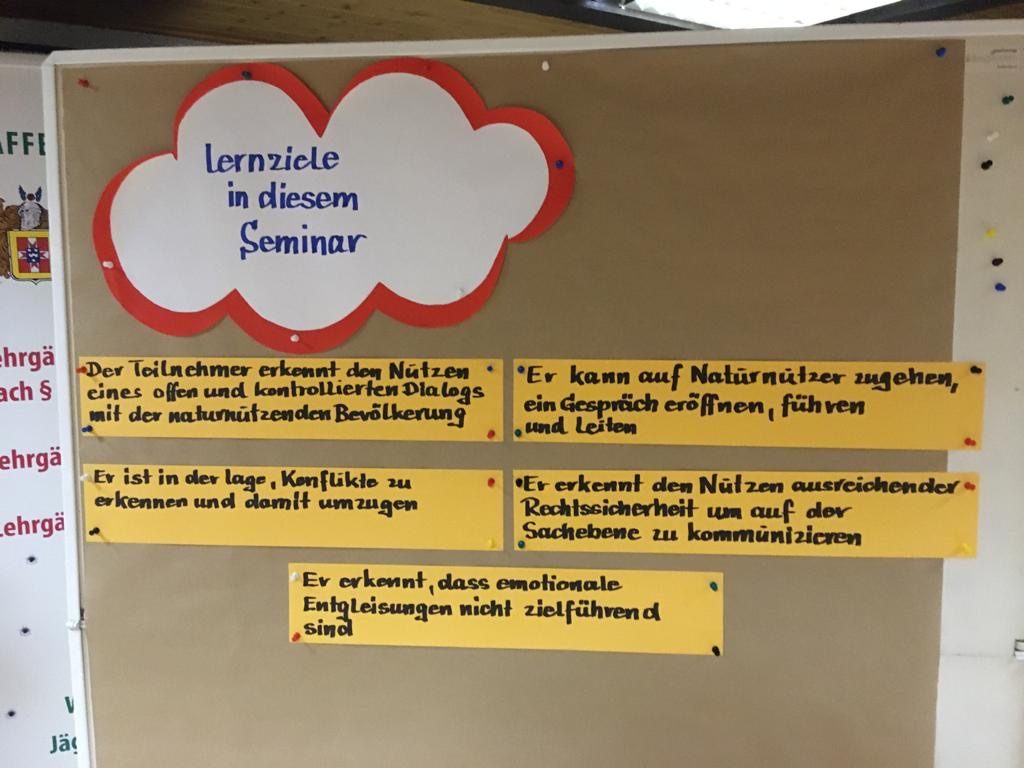 Lernziele
in diesem
Seminar
Der Teilnehmer erkennt den Nutzen
eines offen und kontrollierten Dialogs
mit der naturnutzenden Bevölkerung
Er kann auf Naturnutzer zugehen,
ein Gespräch eröffnen, führen
und Leiten
Er ist in der lage, Konflikte zu
erkennen und damit umzugen
Er erkennt den Nutzen ausreichender
Rechtssicherheit um auf der
Sachebene zu kommunizieren
Er erkennt, dass emotionale
Entgleisungen nicht zielführend
sind
AFFE
ehrgä
ach §
ehrgä
Lehrgä
Jäg